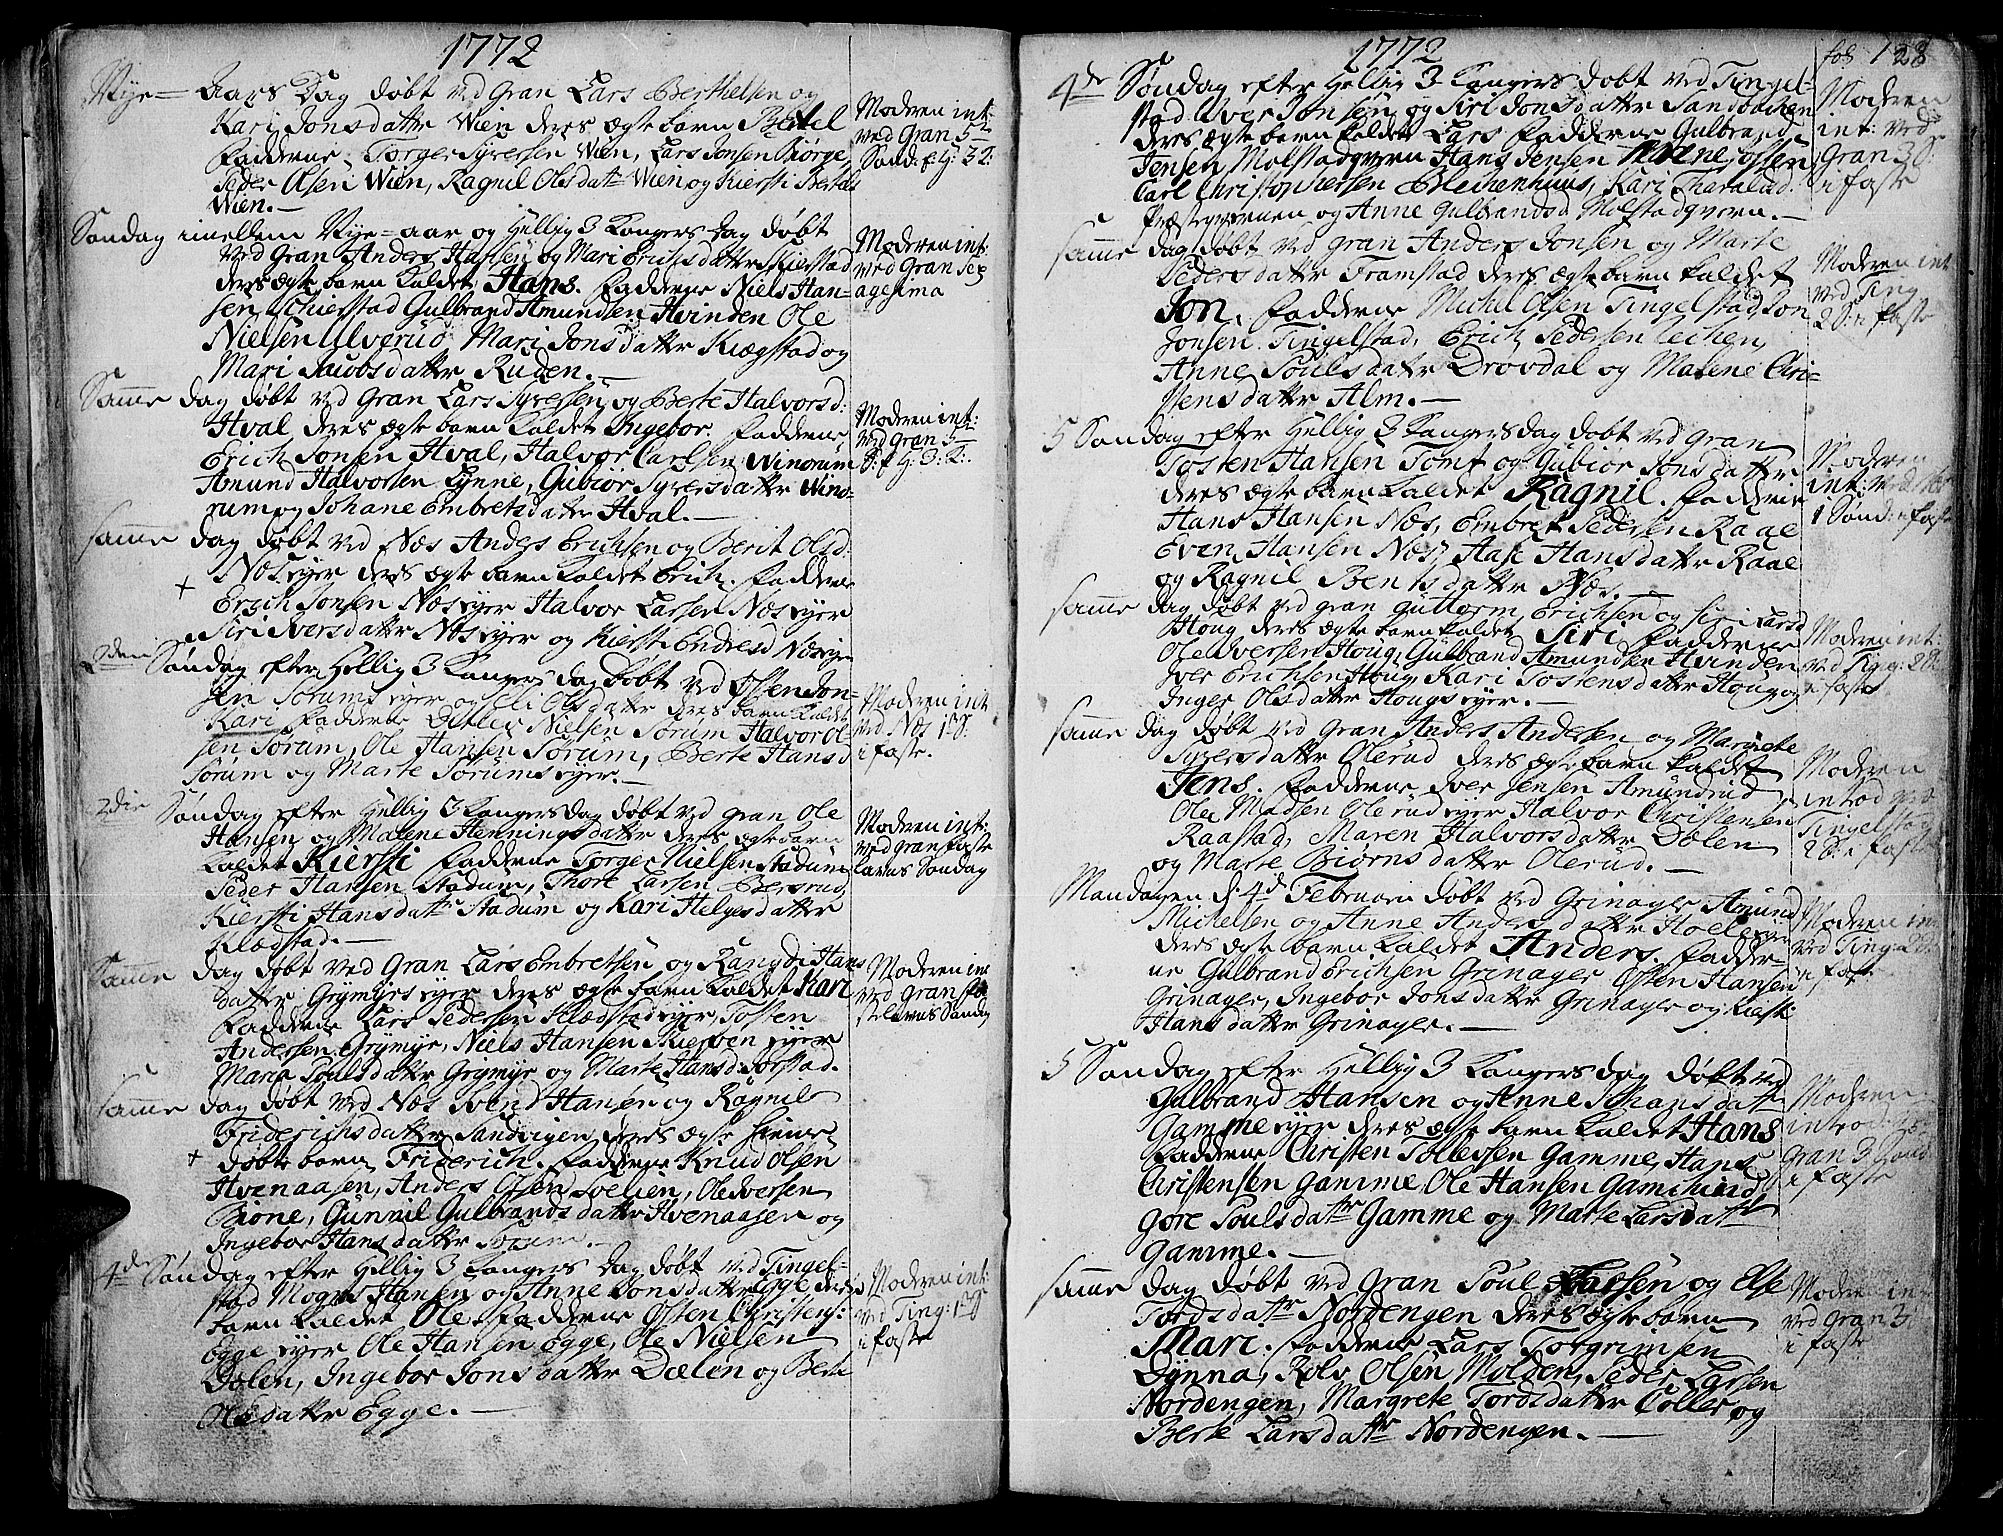 1772
Nye= Aars Dag døbt ved Gran Lars Berthelsen og
Kari Jonsdatter Wien deres ægte barn Bertel
Fadderne Torger Syversen Wien, Lars Jonsen Biørge,
Peder Olsen Wien, Ragnil Olsdatr Wien og Kiersti Bertels
Wien.—
Moderen int:
ved Gran 5te
Sønd: f: H: 3 K:
Søndag imellem Nye=aar og Hellig 3 Kongers Dag døbt
ved Gran Anders Hansen og Mari Erichsdatter Skierstad
deres ægte barn kaldet Hans. Fadderne Niels Han=
sen Schierstad Gulbrand Amundsen Hvinden Ole
Nielsen Ulverud Mari Jonsdatter Kiægstad og
Mari Jacobsdatter Ruden.—
Moderen int:
ved Gran Sex
agesima
Samme dag døbt ved Gran Lars Syversen og Berte Halvorsd:
Hval deres ægte barn kaldet Ingebor. Fadderne
Erich Jonsen Hval, Halvor Carlsen Winorum
Amund Halvorsen Lynne, Gubiør Syversdatter Wino=
rum og Johane Embretsdatter Hval.—
Moderen int:
ved Gran 5
S: f H: 3: K:
samme dag døbt ved Næs Anders Erichsen og Berit Olsd:
Næs eyer deres ægte barn kaldet Erich. Faddere
+
Erich Jonsen Næs eyer Halvor Larsen Næs eyer
Siri Iversdatter Næs eyer og Kiersti Endresd Næs eye
2den Søndag efter Hellig 3 Kongers dag døbt ved Østen Jon=
sen Sørums eyer og Eli Olsdatter deres barn kaldet
Kari Fadderne Detlev Nielsen Sørum Halvor Ol=
sen Sørum, Ole Hansen Sørum, Berte Hansd
Sørum og Marte Sørums eyer.—
Moderen int
ved Næs 1 S:
i faste.
2die Søndag efter Hellig 3 Kongers dag døbt ved Gran Ole
Hansen og Malene Henningsdatter deres ægte barn
kaldet Kiersti Fadderne Torger Nielsen Stadum
Peder Hansen Stadum, Thore Larsen Bersrud
Kiersti Hansdatr Stadum og Kari Helgesdatter
Klædstad.—
Moderen int:
ved Gran faste
lavns Søndag
Samme dag døbt ved Gran Lars Embretsen og Rangdi Hans
datter Grymyrs eyer deres ægte barn kaldet Kari
Fadderne Lars Pedersen Klædstad eyer, Tosten
Andersen Grymyr, Niels Hansen eyer
Maria Poulsdatter Grymyr og Marte Hansd:
Moderen int
ved Gran fa
stelavns Søndag
samme dag døbt ved Næs Svend Hansen og Ragnil
Friderichsdatter Sandvigen deres ægte hieme
+ døbte barn Friderich. Fadderne Knud Olsen
Hvenaasen, Anders Olsen Velien, Ole Iversen
Bione, Gunnil Gulbrandsdatter Hvenaasen og
Ingebor Hansdatter Sørum.—
4de Søndag efter Hellig 3 Kongers Dag døbt ved Tingel=
stad Mogns Hansen og Anne Jonsdatter Egge deres
barn kaldet Ole. Fadderne Østen Christens:
Egge eyer Ole Hansen Egge, Ole Nielsen
Dælen, Ingebor Jonsdatter Dælen og Berte
Olsdatter Egge.—
Moderen int:
ved Ting: 1 S
i faste
1772
fol 128
4de Søndag efter Hellig 3 Kongers døbt ved Tingel=
stad Iver Jonsen og Siri Jonsdatter Sandbachen
deres ægte barn kaldet Lars Fadderne Gulbrand
Jensen Molstadqvern Hans Jensen
Carl Christophersen Blechenhuus, Kari Tharalsd.
Præsteqvernen og Anne Gulbrandsd Molstadqvern.—
Moderen
int: ved
Gran 3 S:
i faste
samme dag døbt ved Gran Anders Jonsen og Marte
Pedersdatter Framstad deres ægte barn kaldet
Jon. Fadderne Michel Olsen Tingelstad, Jon
Jonsen Tingelstad, Erich Pedersen Lechen,
Anne Poulsdatter Drovdal og Malene Chri=
stensdatter Alm.—
Moderen int
ved Ting
2 S: i faste
5 Søndag efter Hellig 3 Kongers dag døbt ved Gran
Tosten Hansen Tomt og Gubiør Jonsdatter
deres ægte barn kaldet Ragnil. Fadderne
Hans Hansen Næs, Embret Pedersen Raae
Even Hansen Næs, Hans Hansdatter Raae
og Ragnil Bentsdatter Næs.
Moderen
int: ved Næs
1 Sønd: i faste
samme dag døbt ved Gran Guttorm Erichsen og Siri Larsd
Houg deres ægte barn kaldet Siri Fadderne
Ole Iversen Houg, Gulbrand Amundsen Hvinden
Iver Erichsen Houg Kari Tostensdatter Houg og
Inger Olsdatter Hougs eyer.—
Moderen int:
ved Ting: 2 S:
i faste
samme dag døbt ved Gran Anders Andersen og Margrete
Syversdatter Olerud deres ægte barn kaldet
Jens. Fadderne Iver Jensen Amundrud
Ole Madsen Olerud eyer Halvor Christensen
Raastad, Maren Halvorsdatter Dølen
og Marte Biørnsdatter Olerud.—
Moderen
introd ved
Tingelstad
2 S: i faste
Mandagen d. 4de Februari døbt ved Grinager Amund
Michelsen og Anne Andersdatter Hoel
deres ægte barn kaldet Anders. Fadder=
ne Gulbrand Erichsen Grinager Østen Hansen
Grinager, Ingebor Jonsdatter Grinager og Kiersti
Hansdatter Grinager.—
Moderen int
ved Ting: 2 S:
i faste
5 Søndag efter Hellig 3 Kongers dag døbt ved
Gulbrand Hansen og Anne Johansdatr
Gamme eyer deres ægte barn kaldet Hans
Fadderne Christen Tollefsen Gamme, Hans
Christensen Gamme, Ole Hansen Gamchind
Gore Poulsdatr Gamme og Marte Larsdatr
Gamme.—
Moderen
introd: ved
Gran 3 Sønd
i faste
samme dag døbt ved Gran Poul Larsen og Else
Tordsdatr Nordengen deres ægte barn
Mari. Fadderne Lars Torgrimsen
Dynna, Rolv Olsen Molden, Peder Larsen
Nordengen, Margrete Tordsdatter Coller og
Berte Larsdatr Nordengen.—
Moderen int
ved Gran 3
i faste